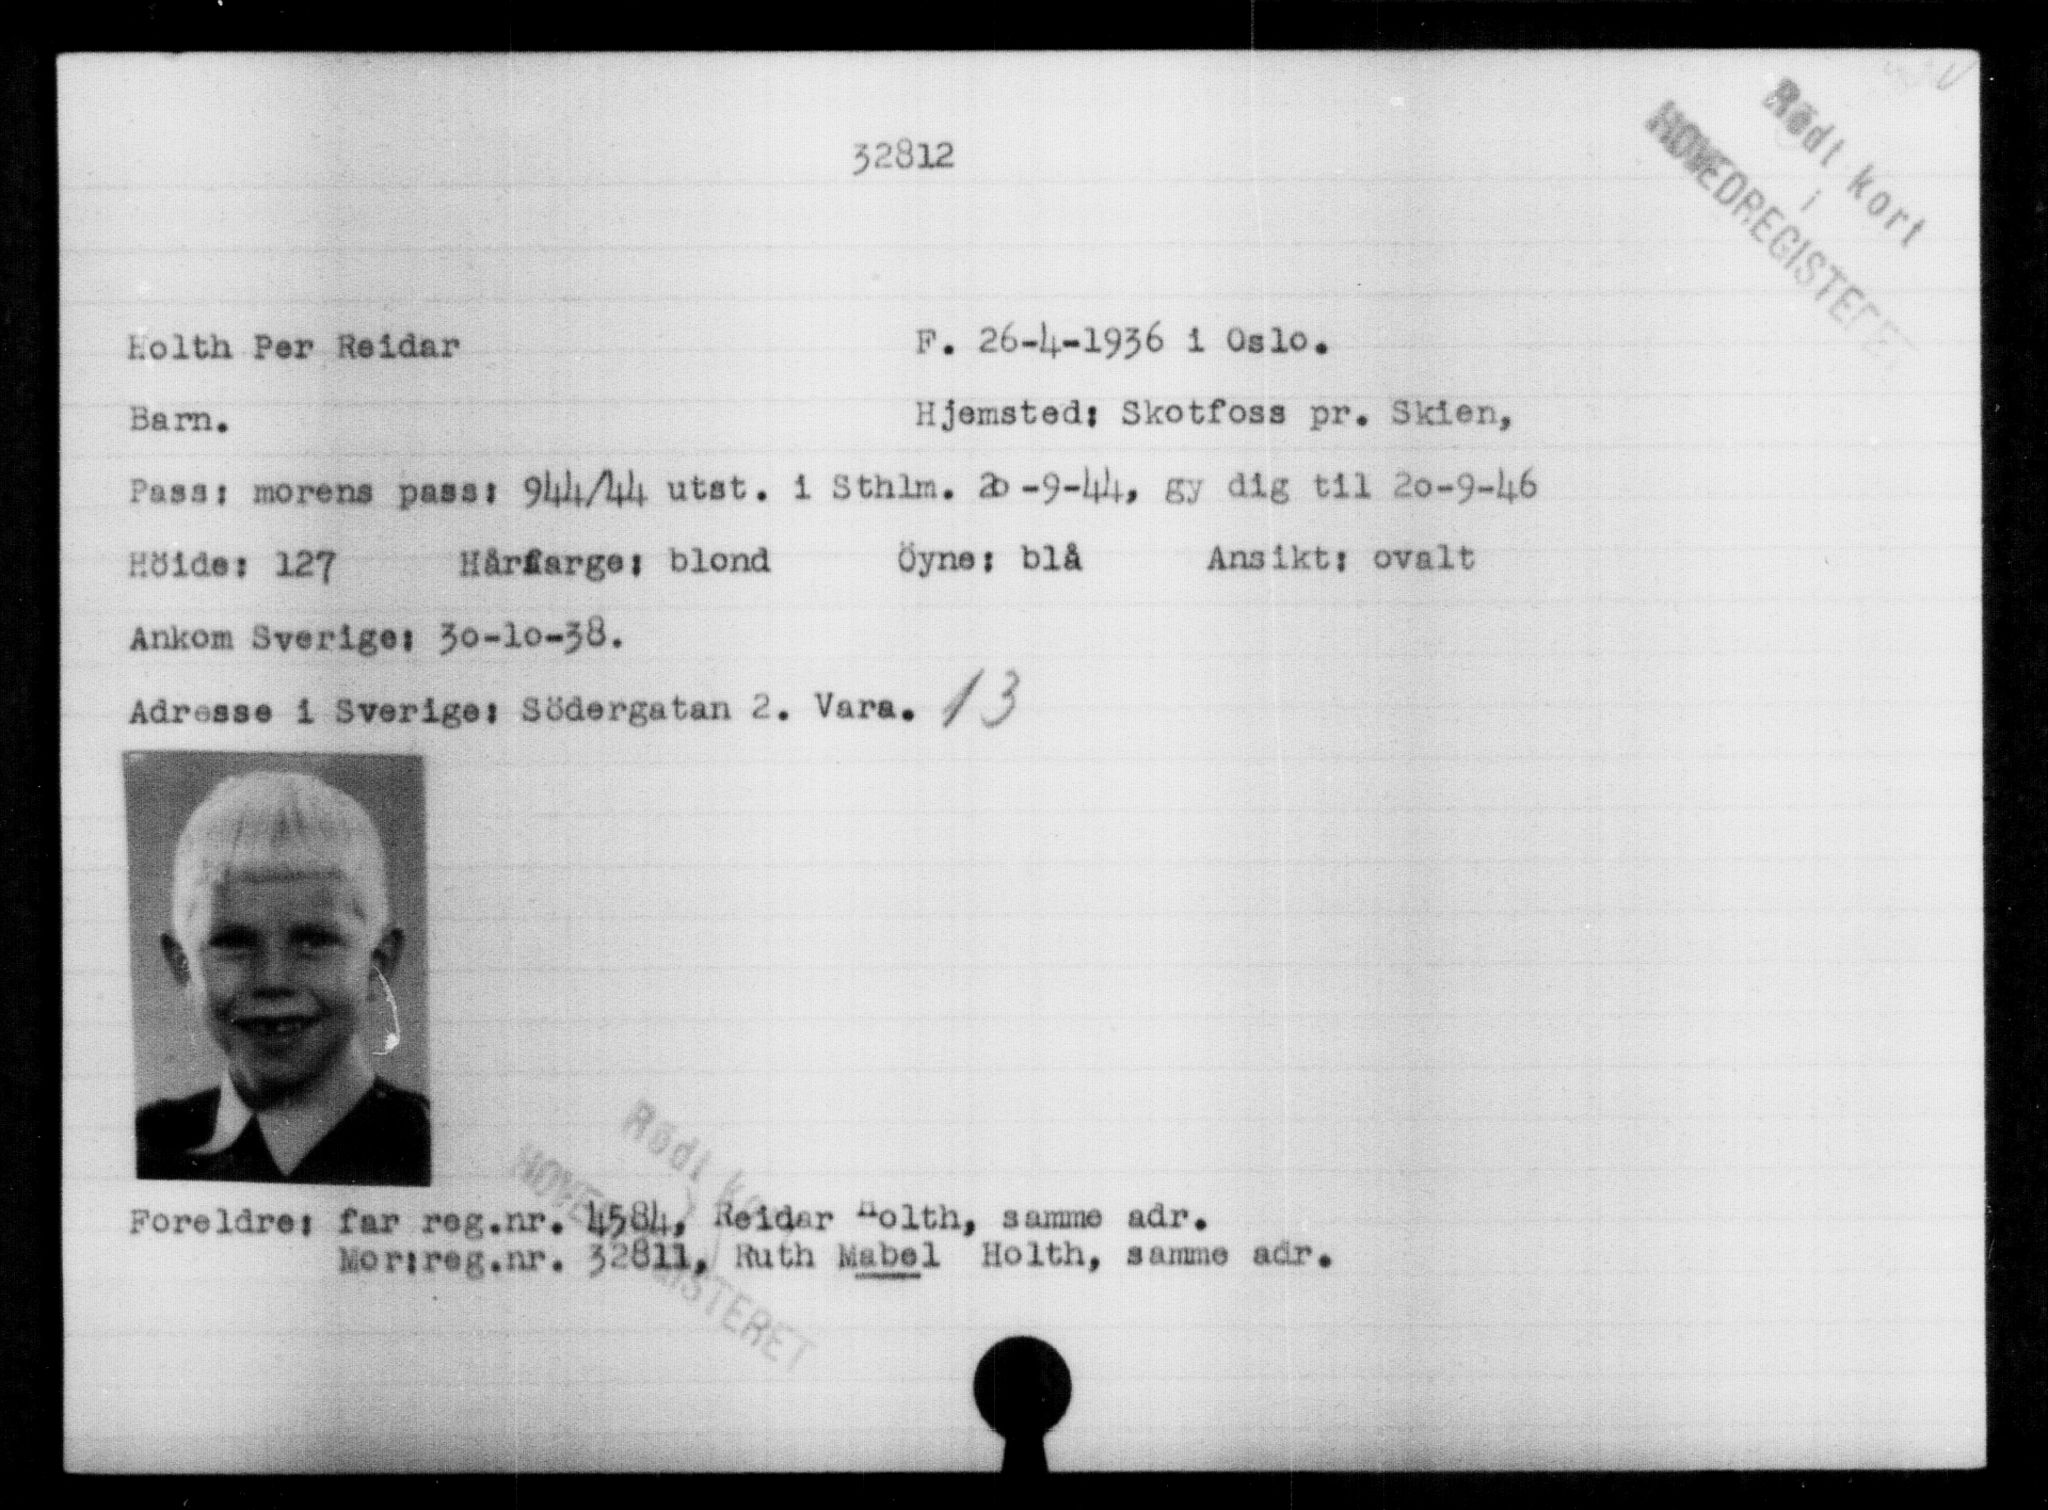 Rødt kort
i
HOVEDREGISTERET
32812
Holth Per Reidar F. 26-4-1936 i Oslo.
Barn. Hjemsted: Skotfoss pr. Skien,
Pass: morens pass: 944/44 utst. i Sthlm. 20-9-44, gy dig til 20-9-46
Höide: 127 Hårfarge: blond Öyne: blå Ansikt: ovalt
Ankom Sverige: 30-10-38.
Adresse i Sverige: Södergatan 2. Vara. 13
Rødt kort
i
HOVEDREGISTERET
Foreldre: far reg.nr. 4584, Reidar Holth, samme adr.
Mor:reg.nr. 32811, Ruth Mabel Holth, samme adr.